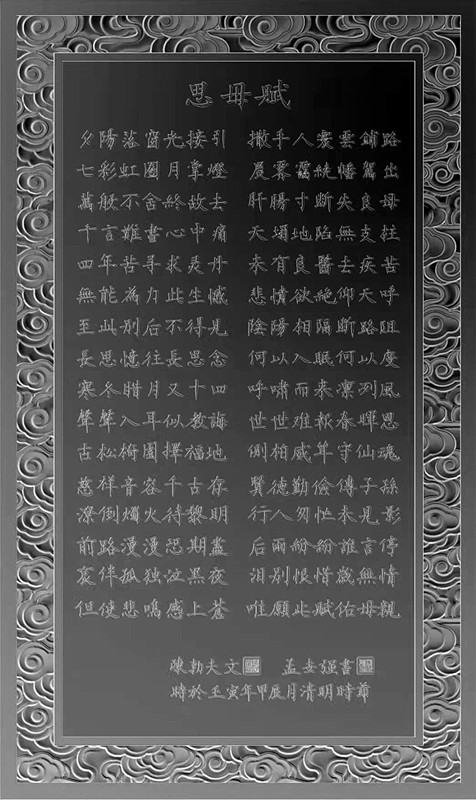 思母賦
夕陽落窗光接引 撒手人寰雲鋪路
七彩虹圈月掌燈 晨霧靄繞幡駕出
萬般不舍終故去 肝腸寸斷失良母
千言難書心中痛 天塌地陷無支拄
四年苦尋求灵丹 未有良醫去疾苦
無能為力此生憾 悲情欲絕仰天呼
至此別后不得見 陰陽相隔斷路阻
長思憶往長思念 何以入眠何以度
寒冬腊月又十四 呼嘯而来凛冽風
聲聲入耳似教誨 世世难報春暉恩
古松椅園擇福地 側柏威年守仙魂
慈祥音容千古存 賢德勤儉傳子孫
潦倒燭火待黎明 行人匆忙未見影
前路漫漫恐期盡 后雨紛紛誰言停
哀伴孤独泣黑夜 泪別恨惜歲無情
但使悲鳴感上蒼 唯願此賦佑母親
陳勃夫文 孟安强書
時於壬寅年甲辰月清明時節